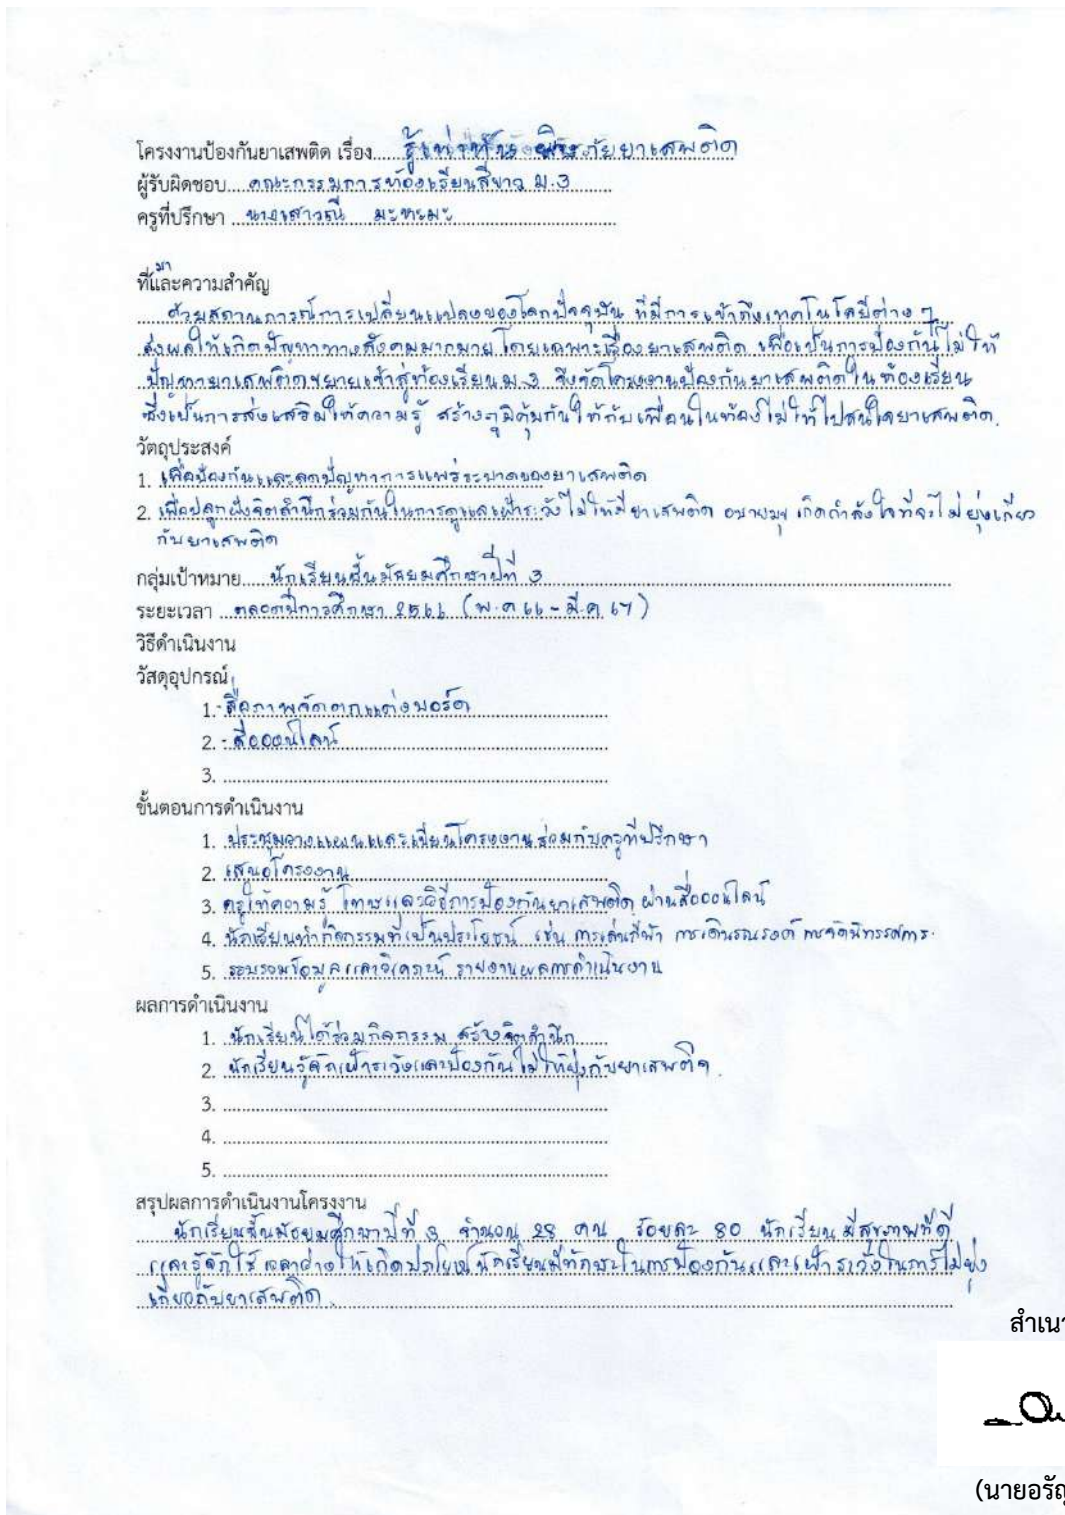 โครงงานป้องกันยาเสพติด เรื่อง.....รู้เท่าทัน พิษภัยยาเสพติด
ผู้รับผิดชอบ....คณะกรรมการห้องเรียนสีขาว ม.3
ครูที่ปรึกษา ...นางเสาวณี มะหะมะ
ที่มาและความสำคัญ
ด้วยสถานการณ์การเปลี่ยนแปลงของโลกปัจจุบัน ที่มีการเข้าถึงเทคโนโลยีต่าง ๆ
ส่งผลให้เกิดปัญหาทางสังคมมากมาย โดยเฉพาะเรื่องยาเสพติด เพื่อเป็นการป้องกันไม่ให้
ปัญหายาเสพติดขยายเข้าสู่ห้องเรียน ม.3 จึงจัดโครงงานป้องกันยาเสพติดในห้องเรียน
ซึ่งเป็นการส่งเสริมให้ความรู้ สร้างภูมิคุ้มกันให้กับเพื่อนในห้องไม่ให้ไปสนใจยาเสพติด.
วัตถุประสงค์
1. เพื่อป้องกันและลดปัญหาการแพร่ระบาดของยาเสพติด
2. เพื่อปลูกฝังจิตสำนึกร่วมกันในการดูแลเฝ้าระวังไม่ให้มียาเสพติด อบายมุข เกิดกำลังใจที่จะไม่ยุ่งเกี่ยว
กับยาเสพติด
กลุ่มเป้าหมาย.....นักเรียนชั้นมัธยมศึกษาปีที่ 3
ระยะเวลา ...ตลอดปีการศึกษา 2566 (พ.ค 66 - มี.ค 67)
วิธีดำเนินงาน
วัสดุอุปกรณ์
1.- สื่อภาพจัดตกแต่งบอร์ด
2. - สื่อออนไลน์
3.
ขั้นตอนการดำเนินงาน
1. ประชุมวางแผนและเขียนโครงงานร่วมกับครูที่ปรึกษา
2. เสนอโครงงาน
3. ครูให้ความรู้ โทษและวิธีการป้องกันยาเสพติด ผ่านสื่อออนไลน์
4. นักเรียนทำกิจกรรมที่เป็นประโยชน์ เช่น การเล่นกีฬา การเดินรณรงค์ การจัดนิทรรศการ.
5. รวบรวมข้อมูลและวิเคราะห์ รายงานผลการดำเนินงาน
ผลการดำเนินงาน
1. นักเรียนได้ร่วมกิจกรรม สร้างจิตสำนึก
2. นักเรียนรู้จักเฝ้าระวังและป้องกันไม่ให้ยุ่งกับยาเสพติด.
3.
4.
5.
สรุปผลการดำเนินงานโครงงาน
นักเรียนชั้นมัธยมศึกษาปีที่ 3 จำนวน 28 คน ร้อยละ 80 นักเรียนมีสุขภาพที่ดี
และรู้จักใช้เวลาว่างให้เกิดประโยชน์ นักเรียนมีทักษะในการป้องกันและเฝ้าระวังในการไม่ยุ่ง
เกี่ยวกับยาเสพติด.
สำเนา
(นายอรัญ